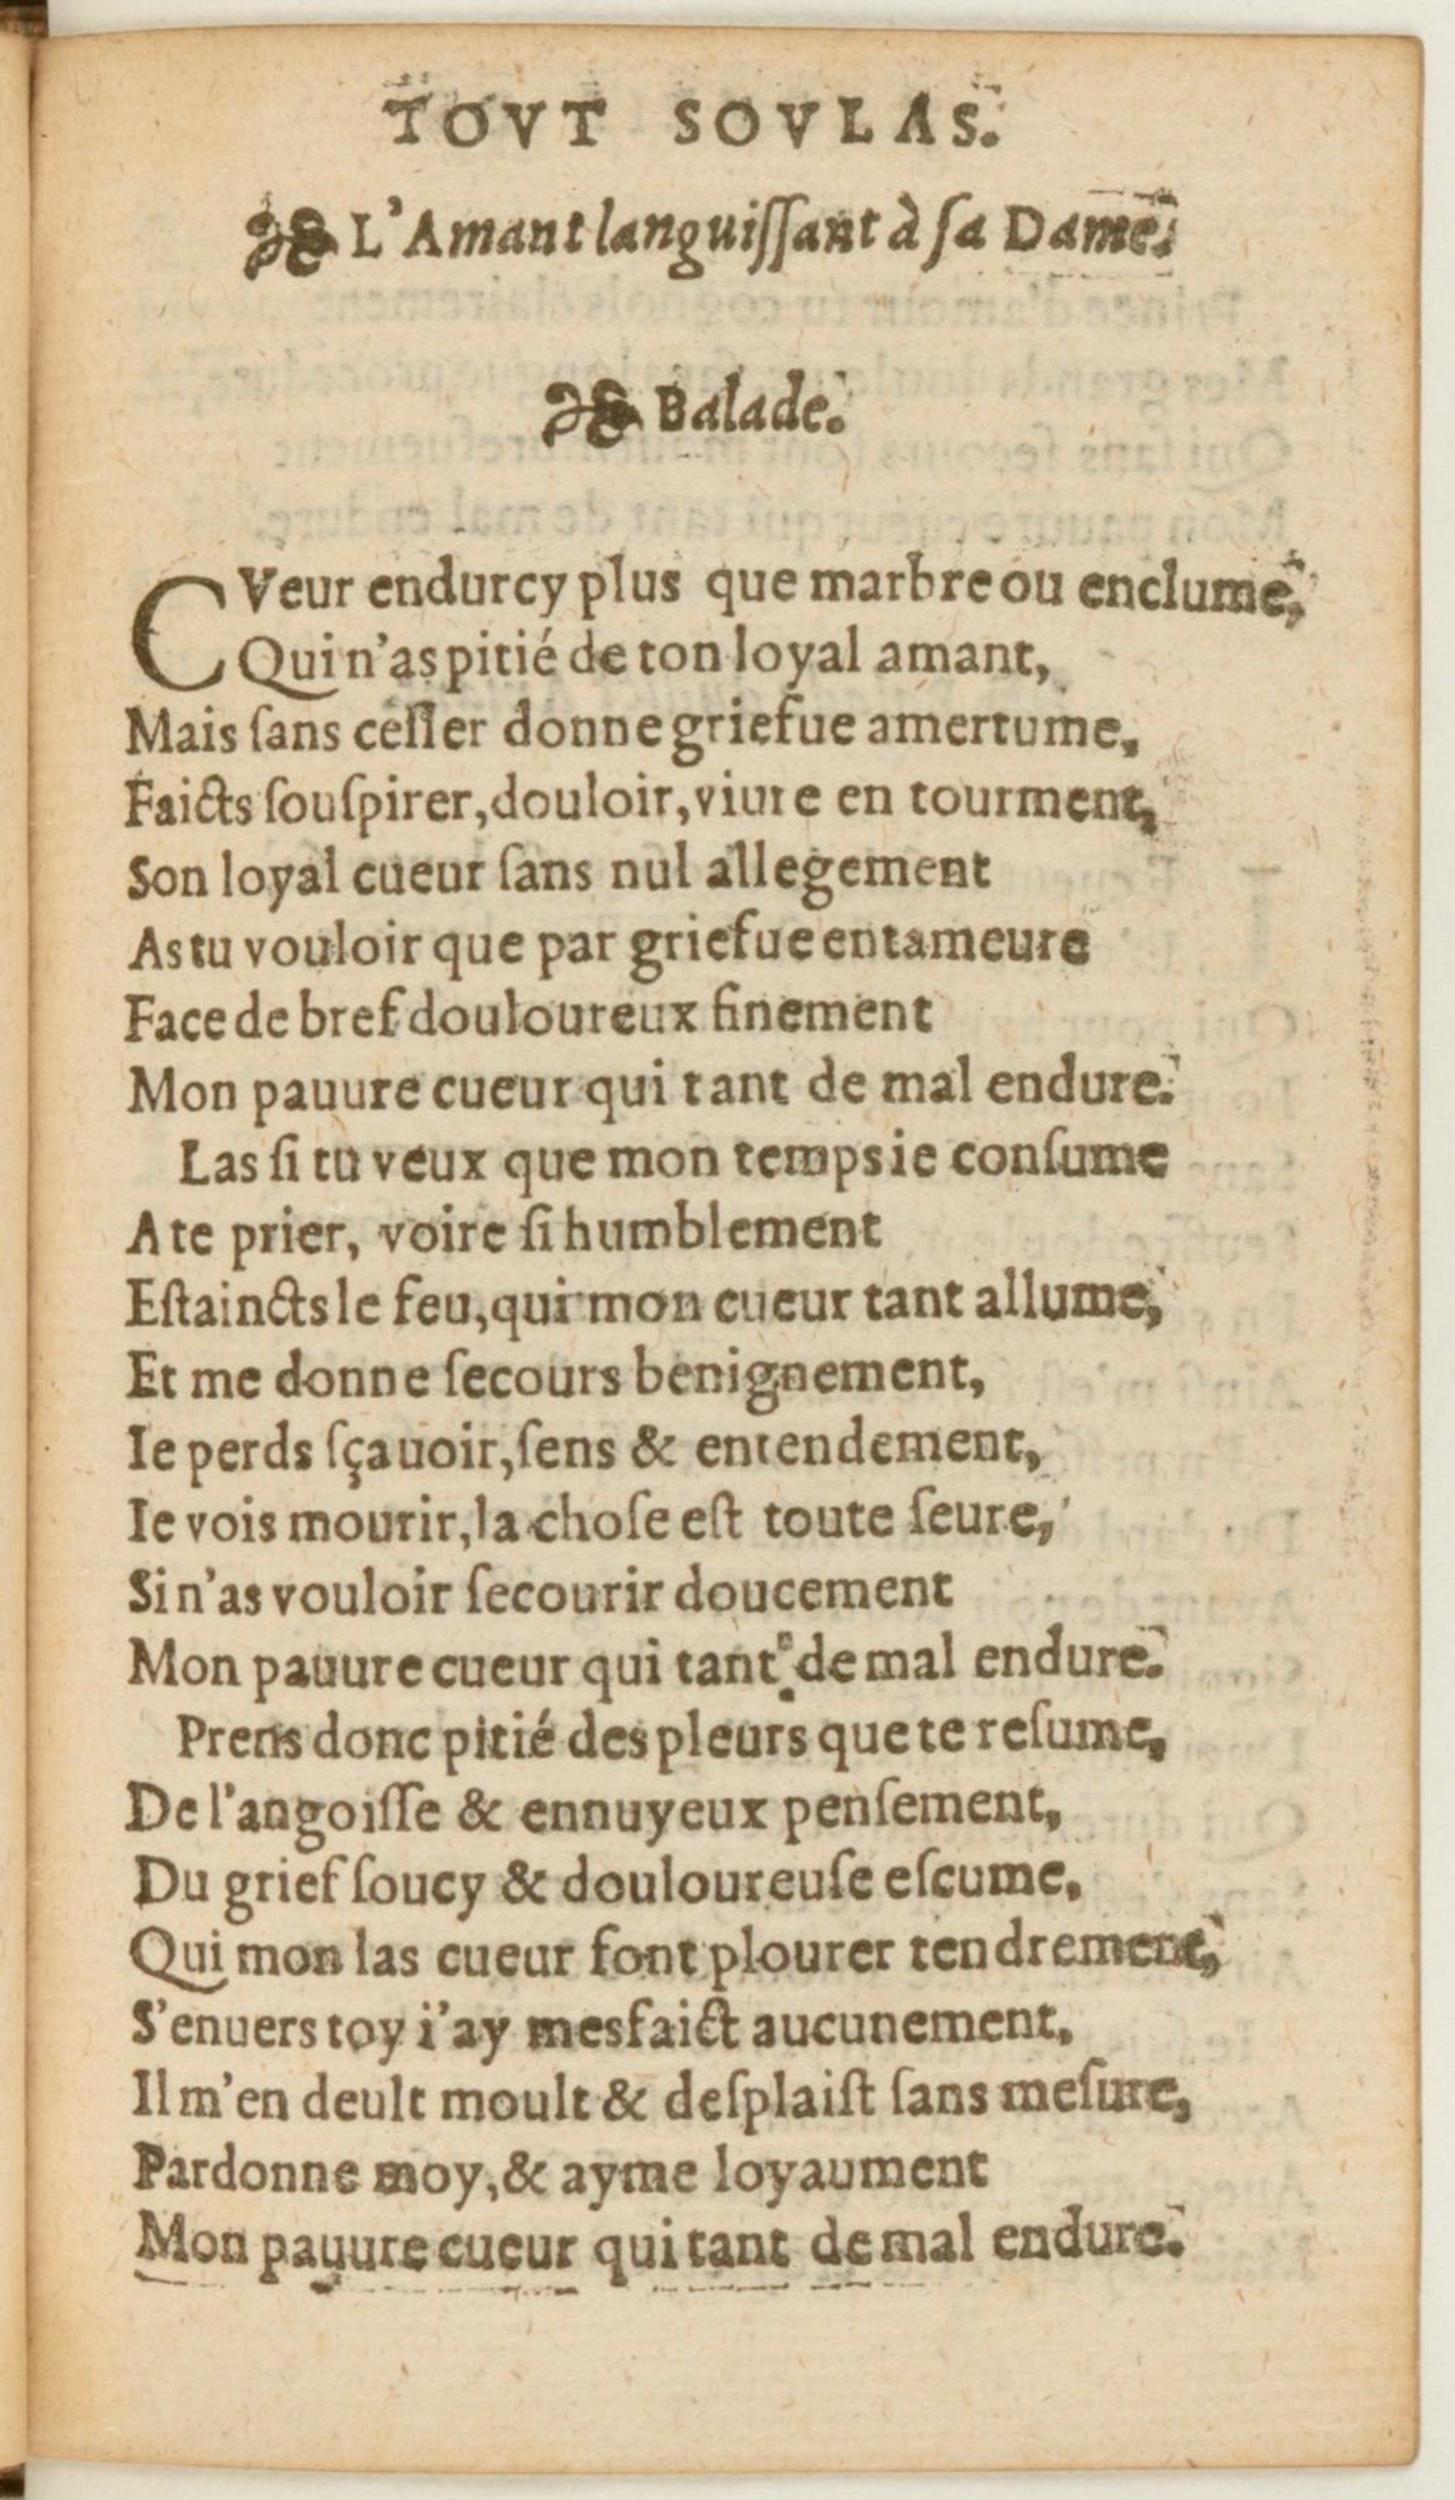 TOVT SOVLAS.
L'Amant languiſſant à ſa Dame.
Balade.
CVeur endurcy plus que marbre ou enclume,
Qui n'as pitié de ton loyal amant,
Mais ſans ceſſer donne griefue amertume,
Faicts ſouſpirer, douloir, viure en tourment,
Son loyal cueur ſans nul allegement
As tu vouloir que par griefue entameure
Face de bref douloureux finement
Mon pauure cueur qui tant de mal endure.
Las ſi tu veux que mon temps ie conſume
A te prier, voire ſi humblement
Eſtaincts le feu, qui mon cueur tant allume,
Et me donne ſecours benignement,
Ie perds ſçauoir, ſens & entendement,
Ie vois mourir, la choſe eſt toute ſeure,
Si n'as vouloir ſecourir doucement
Mon pauure cueur qui tant de mal endure.
Prens donc pitié des pleurs que te reſume,
De l'angoiſſe & ennuyeux penſement,
Du grief ſoucy & douloureuſe eſcume,
Qui mon las cueur font plourer tendrement,
S'enuers toy i'ay mesfaict aucunement,
Il m'en deult moult & deſplaiſt ſans meſure,
Pardonne moy, & ayme loyaument
Mon pauure cueur qui tant de mal endure.